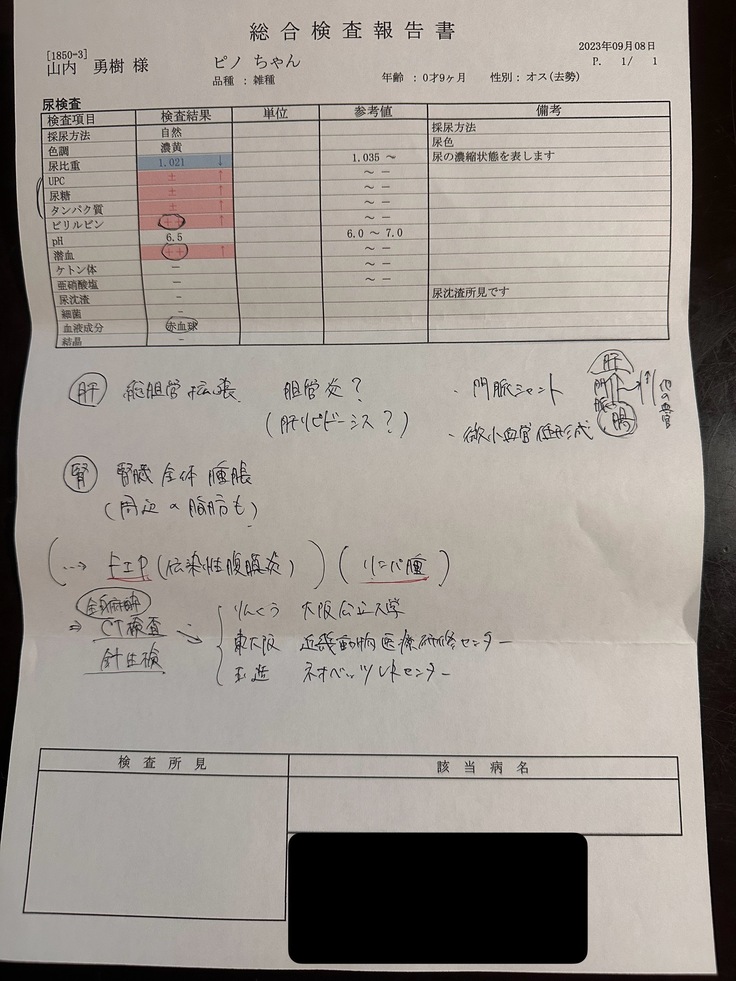 総合検査報告書
2023年09月08日
[1850-3]
山内 勇樹 様 ピノ ちゃん P. 1/ 1
品種 : 雑種 年齢 : 0才9ヶ月 性別 : オス(去勢)
尿検査
検査項目 検査結果 単位 参考値 備考
採尿方法 自然 採尿方法
色調 濃黄 尿色
尿比重 1.021 ↓ 1.035 ～ 尿の濃縮状態を表します
UPC ± ↑ ～ －
尿糖 ± ↑ ～ －
タンパク質 ± ↑ ～ －
ビリルビン ++ ↑ ～ －
pH 6.5 6.0 ～ 7.0
潜血 ++ ↑ ～ －
ケトン体 － ～ －
亜硝酸塩 － ～ －
尿沈渣 － 尿沈渣所見です
細菌 －
血液成分 赤血球
結晶 －
肝 総胆管拡張 胆管炎? ・門脈シャント
(肝リピドーシス?) ・微小血管異形成
肝
門脈
腸
↑↑ 他の血管
腎 腎臓全体腫脹
(周辺の脂肪も)
(…→ FIP(伝染性腹膜炎)) (リンパ腫)
全身麻酔
⇒ CT検査 → りんくう 大阪公立大学
針生検 東大阪 近畿動物医療研修センター
玉造 ネオベッツVRセンター
検査所見 該当病名